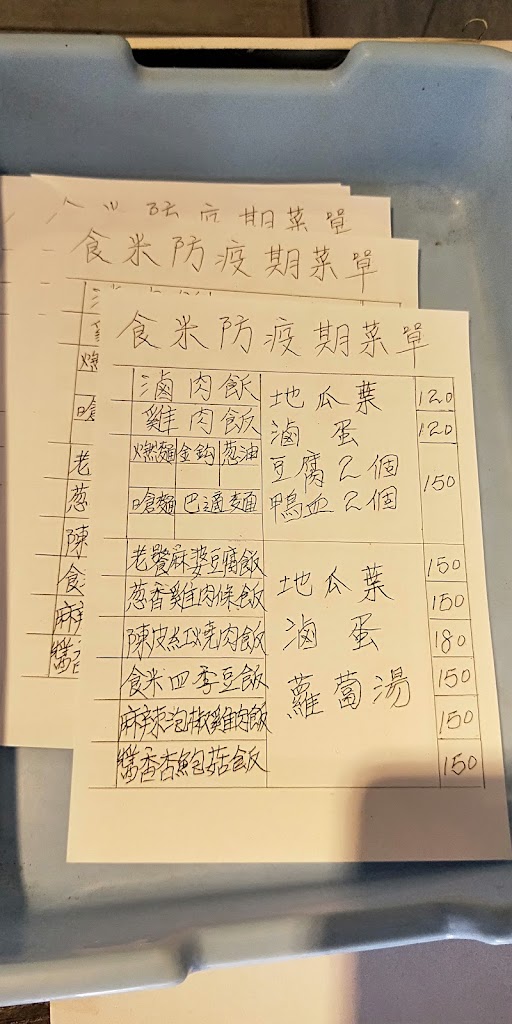 期菜單
食米防疫期菜單
食米防疫期菜單
滷肉飯 地瓜葉 120
雞肉飯 滷蛋 120
燃麵 金鈎 葱油 豆腐2個 150
嗆麵 巴適麵 鴨血2個
老饕麻婆豆腐飯 150
葱香雞肉條飯 地瓜葉 150
陳皮紅燒肉飯 滷蛋 180
食米四季豆飯 蘿蔔湯 150
麻辣泡椒雞肉飯 150
醬香杏鮑菇飯 150
燃
嗆
老
葱
陳
食
麻
醬